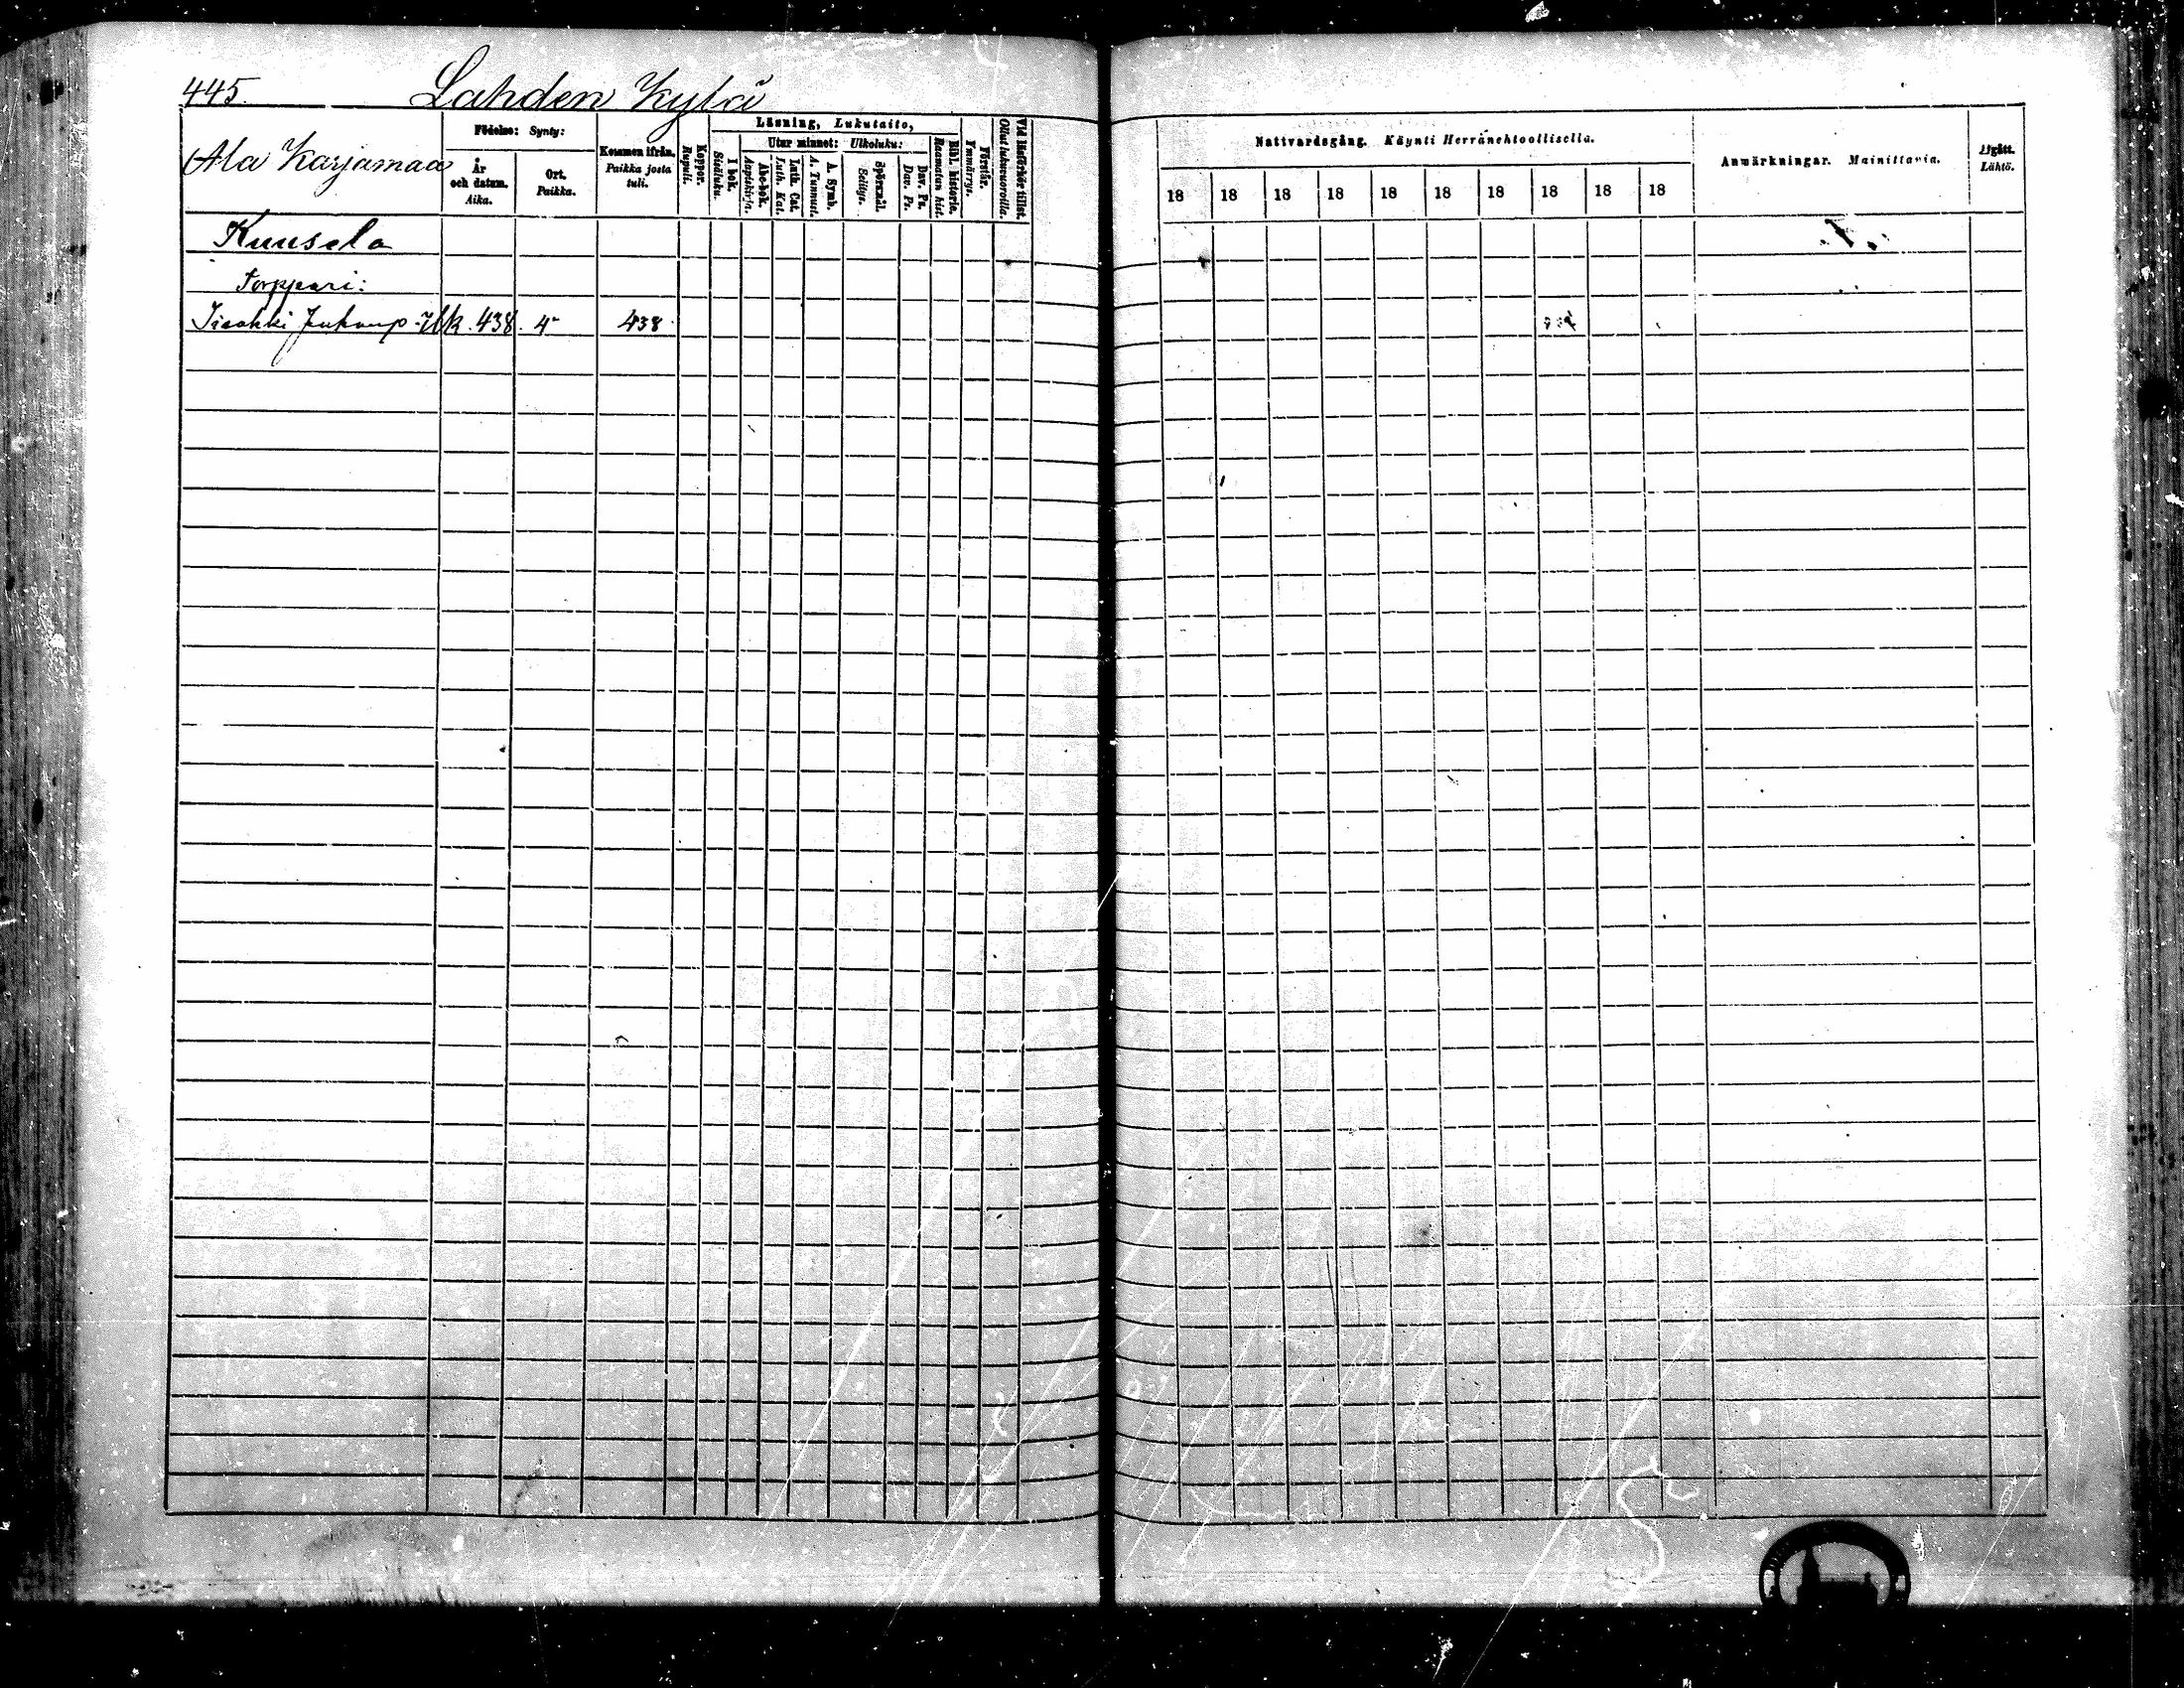 445. Lahden Kylä
Ala Karjamaa
Födelse: Synty:
År och datum. Aika.
Ort. Paikka.
Kommen ifrån. Paikka josta tuli.
Koppor. Rupuli.
Läsning, Lukutaito,
I bok. Sisäluku.
Utur minnet: Ulkoluku:
Abc-bok. Aapiskirja.
Luth. Cat. Luth. Kat.
A. Symb. A. Tunnust.
Spörsmål. Selitys.
Dav. Ps. Dav. Ps.
Bibl. historie. Raamatun hist.
Förstår. Ymmärrys.
Vid läsförhör tillst. Ollut lukuvuoroilla.
Nattvardsgång. Käynti Herränehtoollisella.
18 18 18 18 18 18 18 18 18 18
Anmärkningar. Mainittavia.
Afgått. Lähtö.
Kuusela
Torppari:
438. 4 438